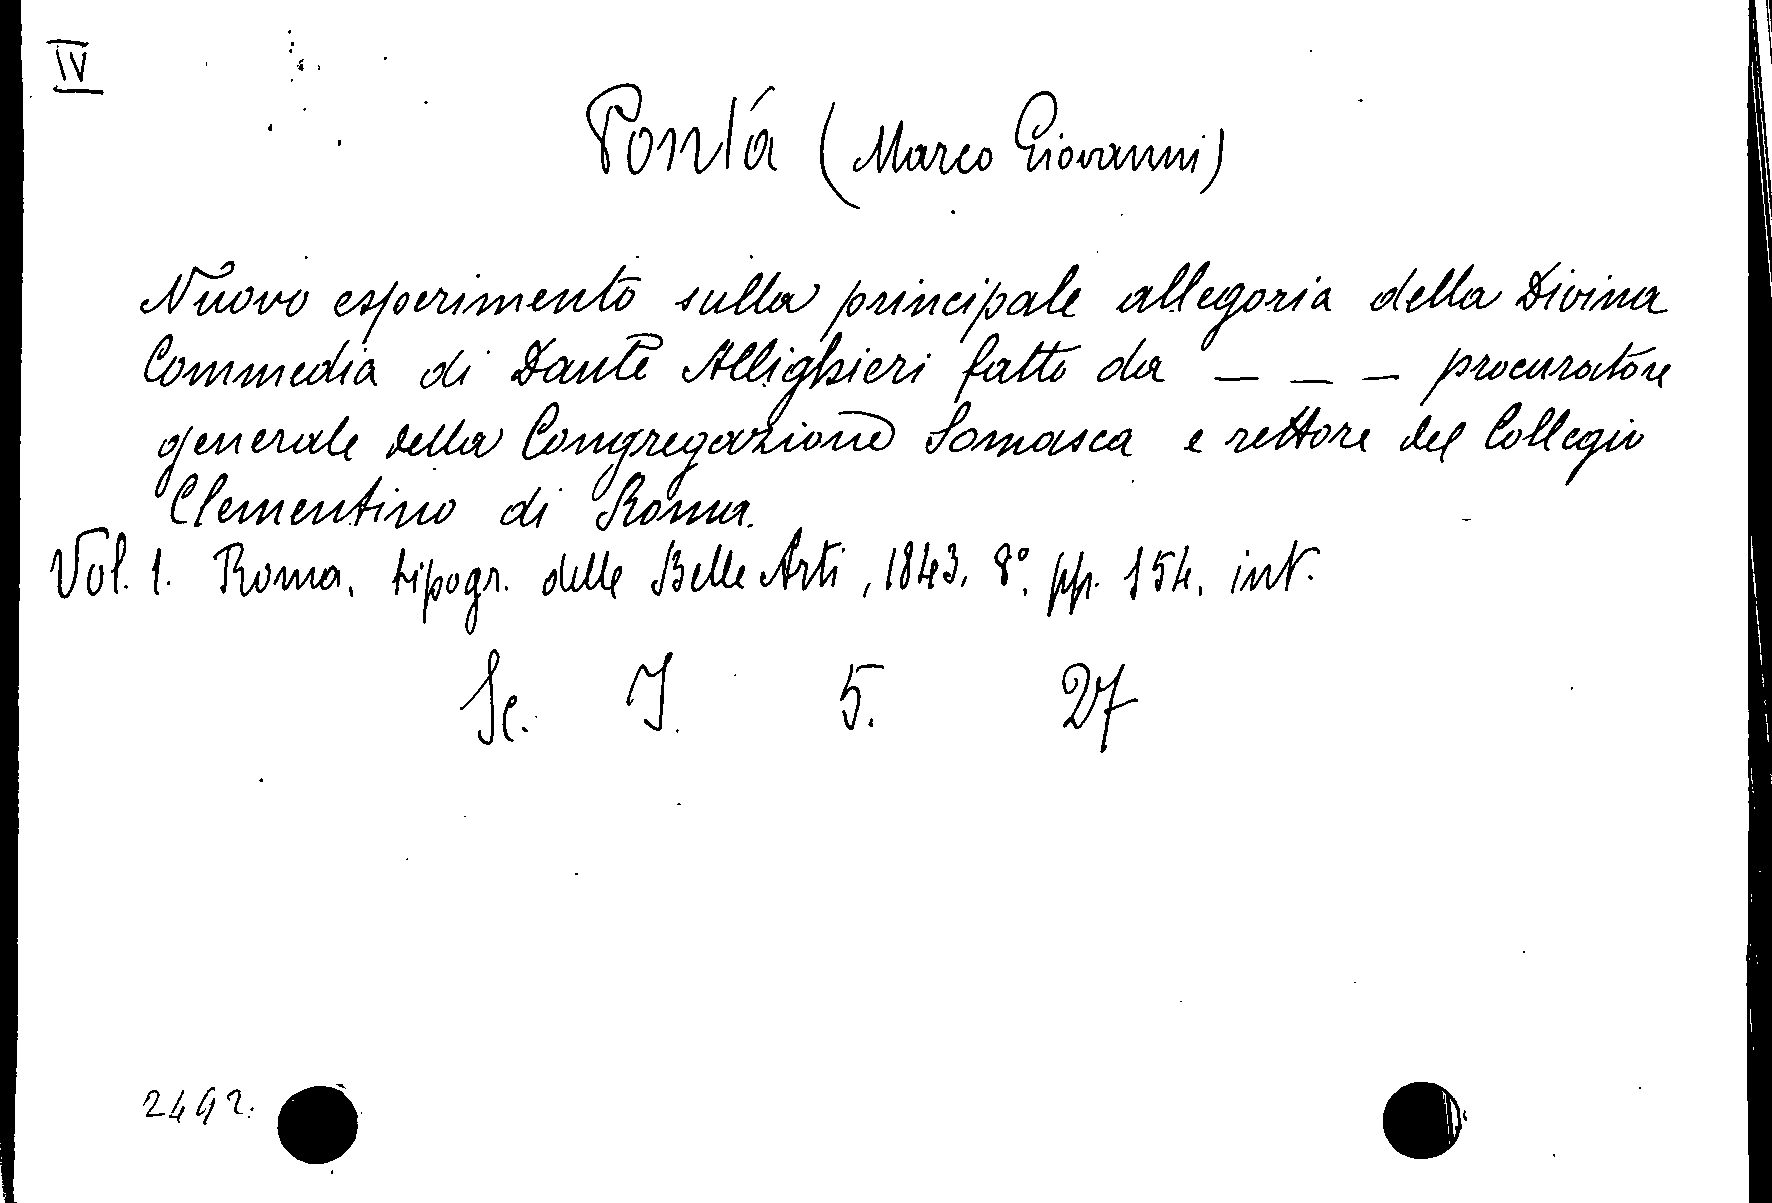 IV
Pontá (Marco Giovanni)
Nuovo esperimento sulla principale allegoria della Divina
Commedia di Dante Allighieri fatto da _ _ _ procuratore
generale della Congregazione Somasca e rettore del Collegio
Clementino di Roma.
Vol. 1. Roma, tipogr. delle Belle Arti, 1843. 8°. pp. 154. int.
Sc. I. 5. 27
2492.